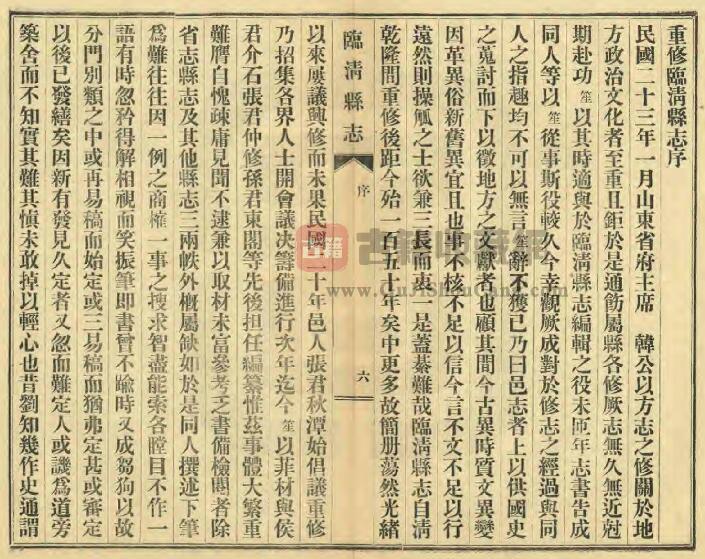 重修臨清縣志序
民國二十三年一月山東省府主席　韓公以方志之修關於地
方政治文化者至重且鉅於是通飭屬縣各修厥志無久無近尅
期赴功笙以其時適與於臨清縣志編輯之役未匝年志書告成
同人等以笙從事斯役較久今幸觀厥成對於修志之經過與同
人之指趣均不可以無言笙辭不獲已乃曰邑志者上以供國史
之蒐討而下以徵地方之文獻者也顧其間今古異時質文異變
因革異俗新舊異宜且也事不核不足以信今言不文不足以行
遠然則操觚之士欲兼三長而衷一是蓋綦難哉臨清縣志自清
乾隆間重修後距今殆一百五十年矣中更多故簡册蕩然光緒
臨清縣志
序
六
以來屢議興修而未果民國二十年邑人張君秋潭始倡議重修
乃招集各界人士開會議决籌備進行次年迄今笙以菲材與侯
君介石張君仲修孫君東閣等先後担任編纂惟茲事體大繁重
難膺自愧疎庸見聞不逮兼以取材未富參考之書備檢閱者除
省志縣志及其他縣志三兩帙外概屬缺如於是同人撰述下筆
爲難往往因一例之商榷一事之搜求智盡能索各瞠目不作一
語有時忽矜得解相視而笑振筆即書曾不踰時又成芻狗以故
分門別類之中或再易稿而始定或三易稿而猶弗定甚或審定
以後已發繕矣因新有發見久定者又忽而難定人或譏爲道旁
築舍而不知實其難其慎未敢掉以輕心也昔劉知幾作史通謂
古籍
古籍收藏网
www.GuJiShouCang.com